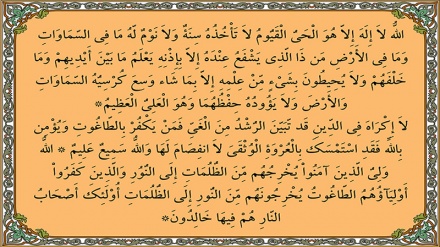 اللهُ لاَ إِلَهَ إِلاَّ هُوَ الْحَيُّ الْقَيُّومُ لاَ تَأْخُذُهُ سِنَةٌ وَلاَ نَوْمٌ لَهُ مَا فِى السَّمَاوَاتِ
وَمَا فِى الأَرْضِ مَن ذَا الَّذِى يَشْفَعُ عِنْدَهُ إِلاَّ بِإِذْنِهِ يَعْلَمُ مَا بَيْنَ أَيْدِيهِمْ وَمَا
خَلْفَهُمْ وَلاَ يُحِيطُونَ بِشَىْءٍ مِّنْ عِلْمِهِ إِلاَّ بِمَا شَاءَ وَسِعَ كُرْسِيُّهُ السَّمَاوَاتِ
وَالأَرْضَ وَلاَ يَؤُودُهُ حِفْظُهُمَا وَهُوَ الْعَلِىُّ الْعَظِيمُ*
لاَ إِكْرَاهَ فِى الدِّينِ قَد تَّبَيَّنَ الرُّشْدُ مِنَ الْغَىِّ فَمَنْ يَكْفُرْ بِالطَّاغُوتِ وَيُؤْمِن
بِاللهِ فَقَدِ اسْتَمْسَكَ بِالْعُرْوَةِ الْوُثْقَىَ لاَ انفِصَامَ لَهَا وَاللهُ سَمِيعٌ عَلِيمٌ * اللهُ
وَلِىُّ الَّذِينَ آمَنُواْ يُخْرِجُهُم مِّنَ الظُّلُمَاتِ إِلَى النُّوْرِ وَالَّذِينَ كَفَرُواْ
أَوْلِيَآؤُهُمُ الطَّاغُوتُ يُخْرِجُونَهُم مِّنَ النُّورِ إِلَى الظُّلُمَاتِ أُوْلَئِكَ أَصْحَابُ
النَّارِ هُمْ فِيهَا خَالِدُونَ*